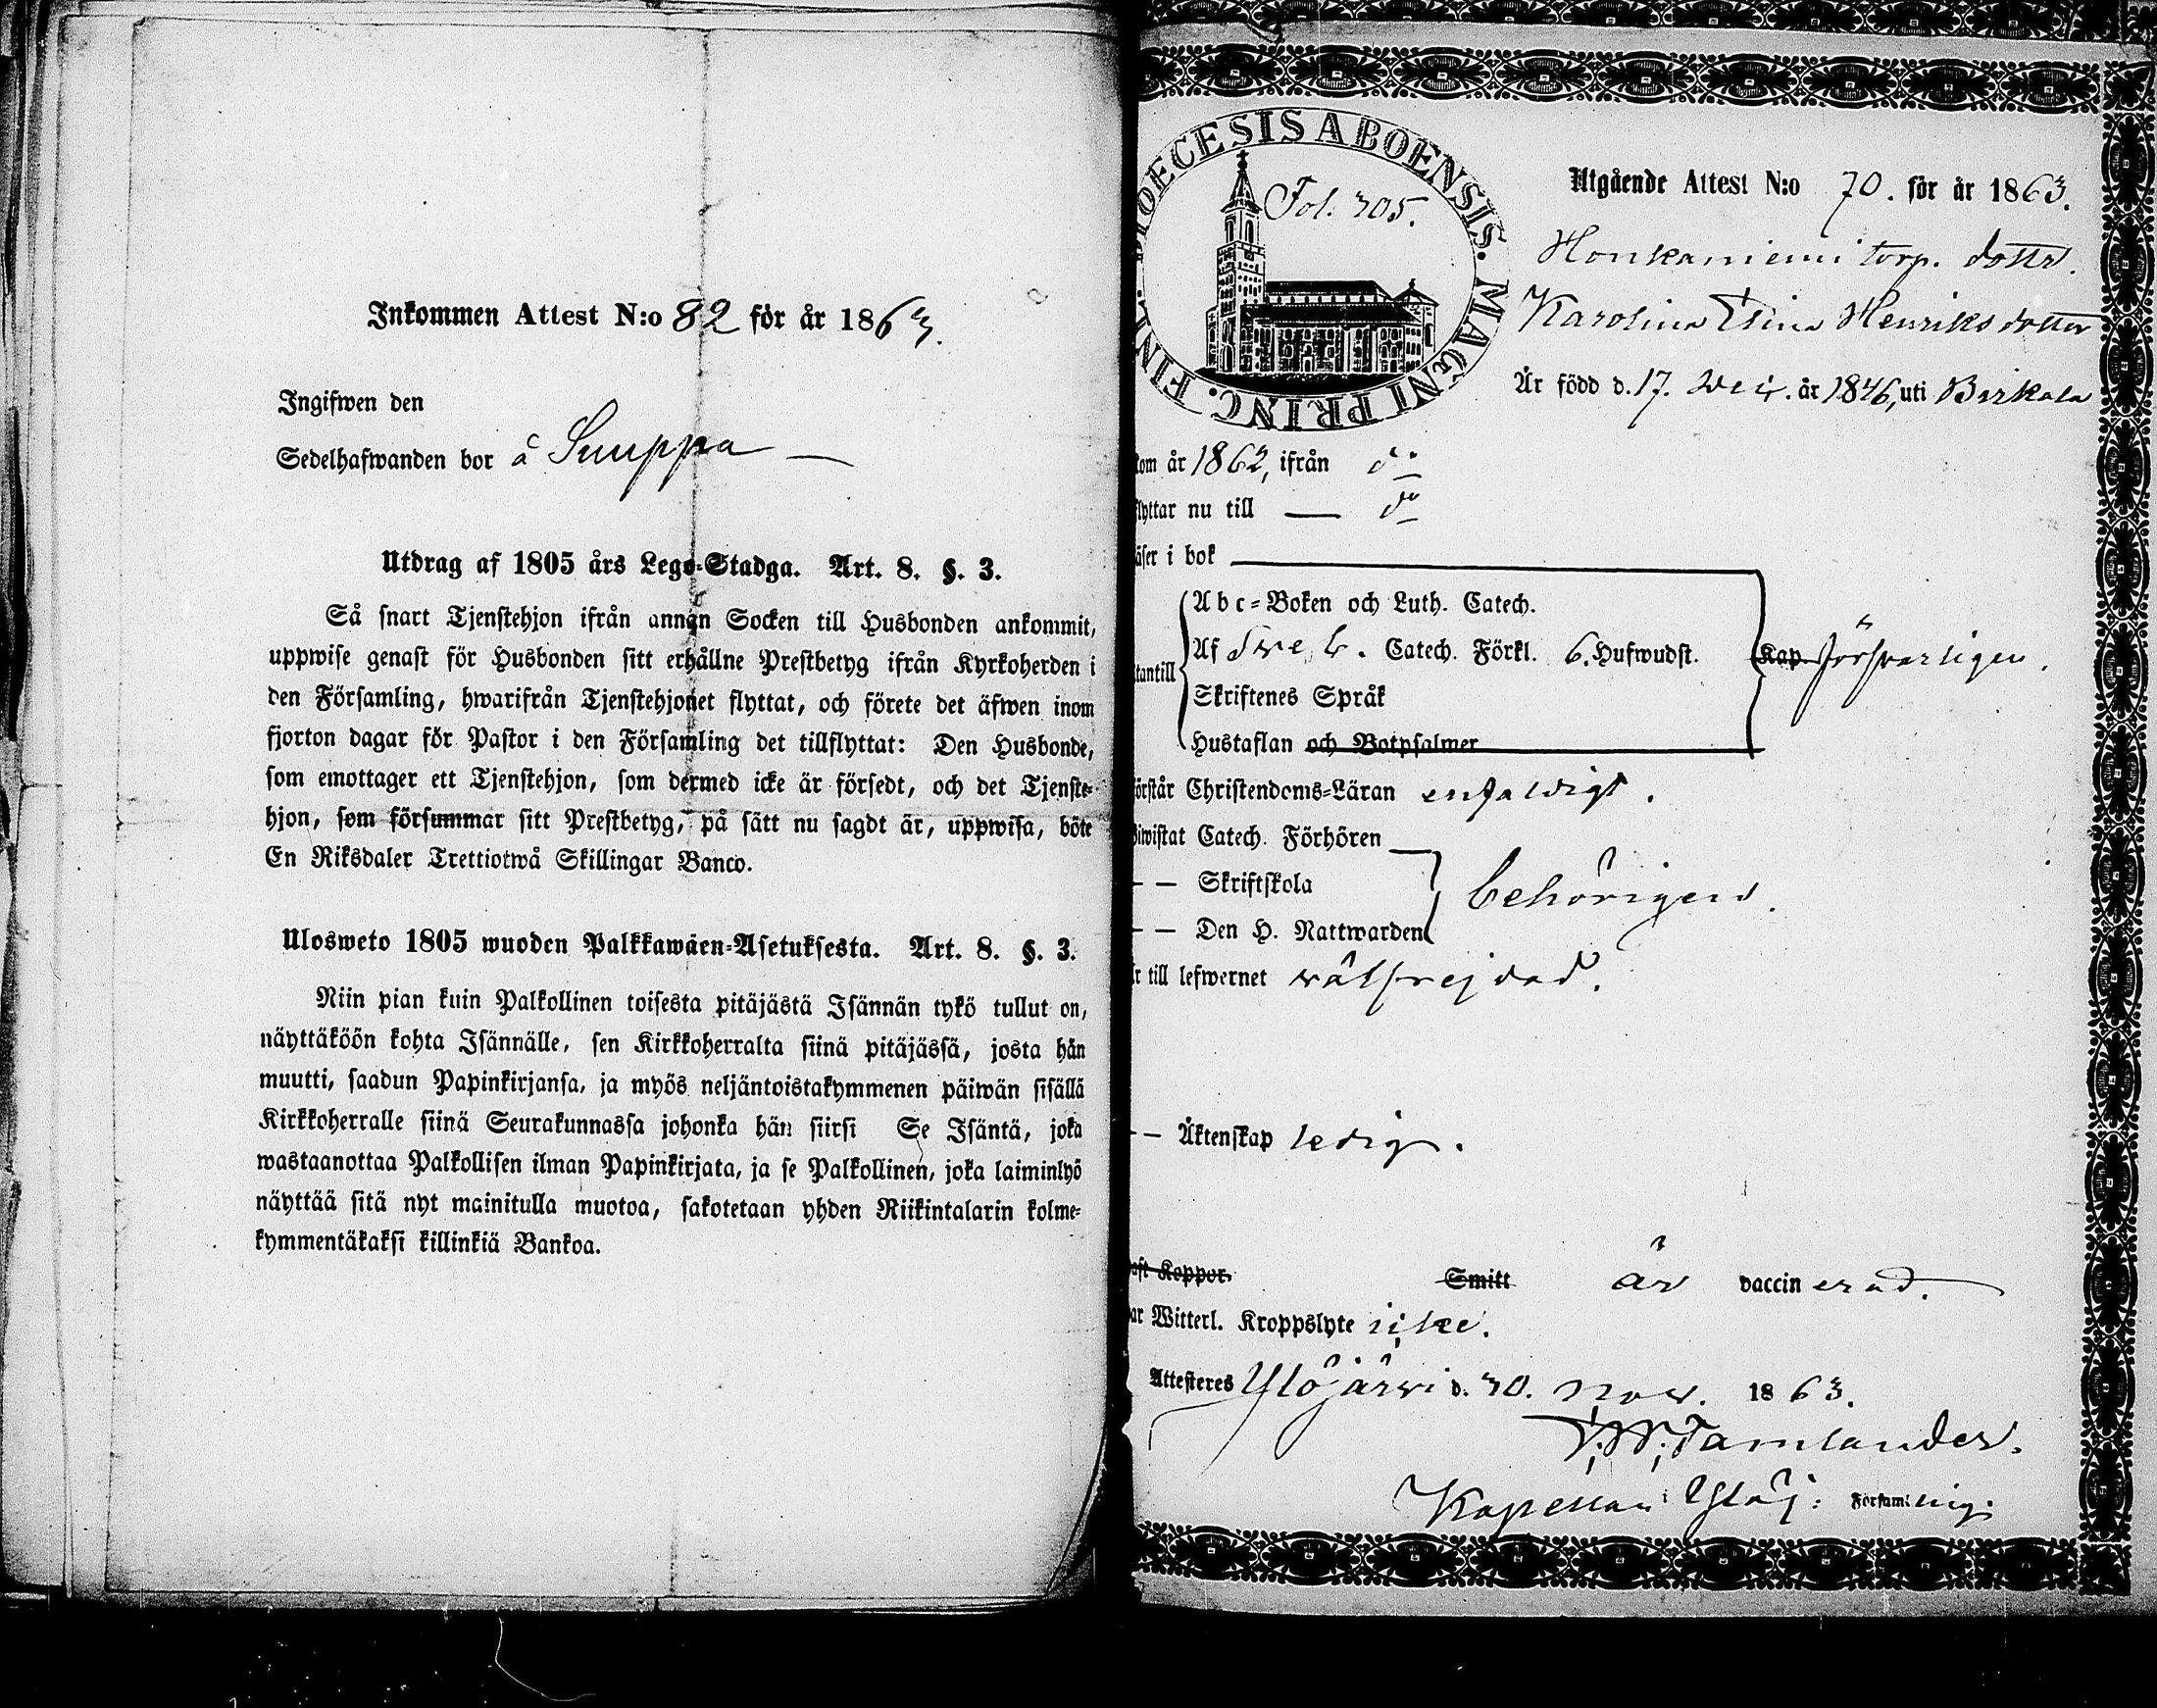 Inkommen Attest N:o 82 för år 1863.
Ingifwen den
Sedelhafwanden bor å Suuppa —
Utdrag af 1805 års Lego-Stadga. Art. 8. §. 3.
Så snart Tjenstehjon ifrån annan Socken till Husbonden ankommit,
uppwise genast för Husbonden sitt erhållne Prestbetyg ifrån Kyrkoherden i
den Församling, hwarifrån Tjenstehjonet flyttat, och förete det äfwen inom
fjorton dagar för Pastor i den Församling det tillflyttat: Den Husbonde,
som emottager ett Tjenstehjon, som dermed icke är försedt, och det Tjenste-
hjon, som försummar sitt Prestbetyg, på sätt nu sagdt är, uppwisa, böte
En Riksdaler Trettiotwå Skillingar Banco.
Ulosweto 1805 wuoden Palkkawäen-Asetuksesta. Art. 8. §. 3.
Niin pian kuin Palkollinen toisesta pitäjästä Isännän tykö tullut on,
näyttäköön kohta Isännälle, sen Kirkkoherralta siinä pitäjässä, josta hän
muutti, saadun Papinkirjansa, ja myös neljäntoistakymmenen päiwän sisällä
Kirkkoherralle siinä Seurakunnassa johonka hän siirsi Se Isäntä, joka
wastaanottaa Palkollisen ilman Papinkirjata, ja se Palkollinen, joka laiminlyö
näyttää sitä nyt mainitulla muotoa, sakotetaan yhden Riikintalarin kolme-
kymmentäkaksi killinkiä Bankoa.
DIOECESIS ABOENSIS. MAGNI PRINC. FINL.
Fol. 305.
Utgående Attest N:o 70. för år 1863.
Honkaniemi torp. dottr.
Karolina Henriksdotter
Är född d. 17. år 1846, uti Birkala
kom år 1862, ifrån d:o
flyttar nu till — d:o
läser i bok
Abc-Boken och Luth. Catech.
Af Sveb. Catech. Förkl. 6. Hufwudst. Kap. försvarligen.
utantill
Skriftenes Språk
Hustaflan och Botpsalmer
förstår Christendoms-Läran enfaldigt.
biwistat Catech. Förhören
— — Skriftskola
behörigen.
— — Den H. Nattwarden
är till lefwernet välfrejdad.
— — Äktenskap ledig.
haft Koppor Smitt är vaccinerad.
har Witterl. Kroppslyte icke.
Attesteres Ylöjärvi d. 30. Nov. 1863.
Tamlander.
Kapellan i Ylöj: Församling.